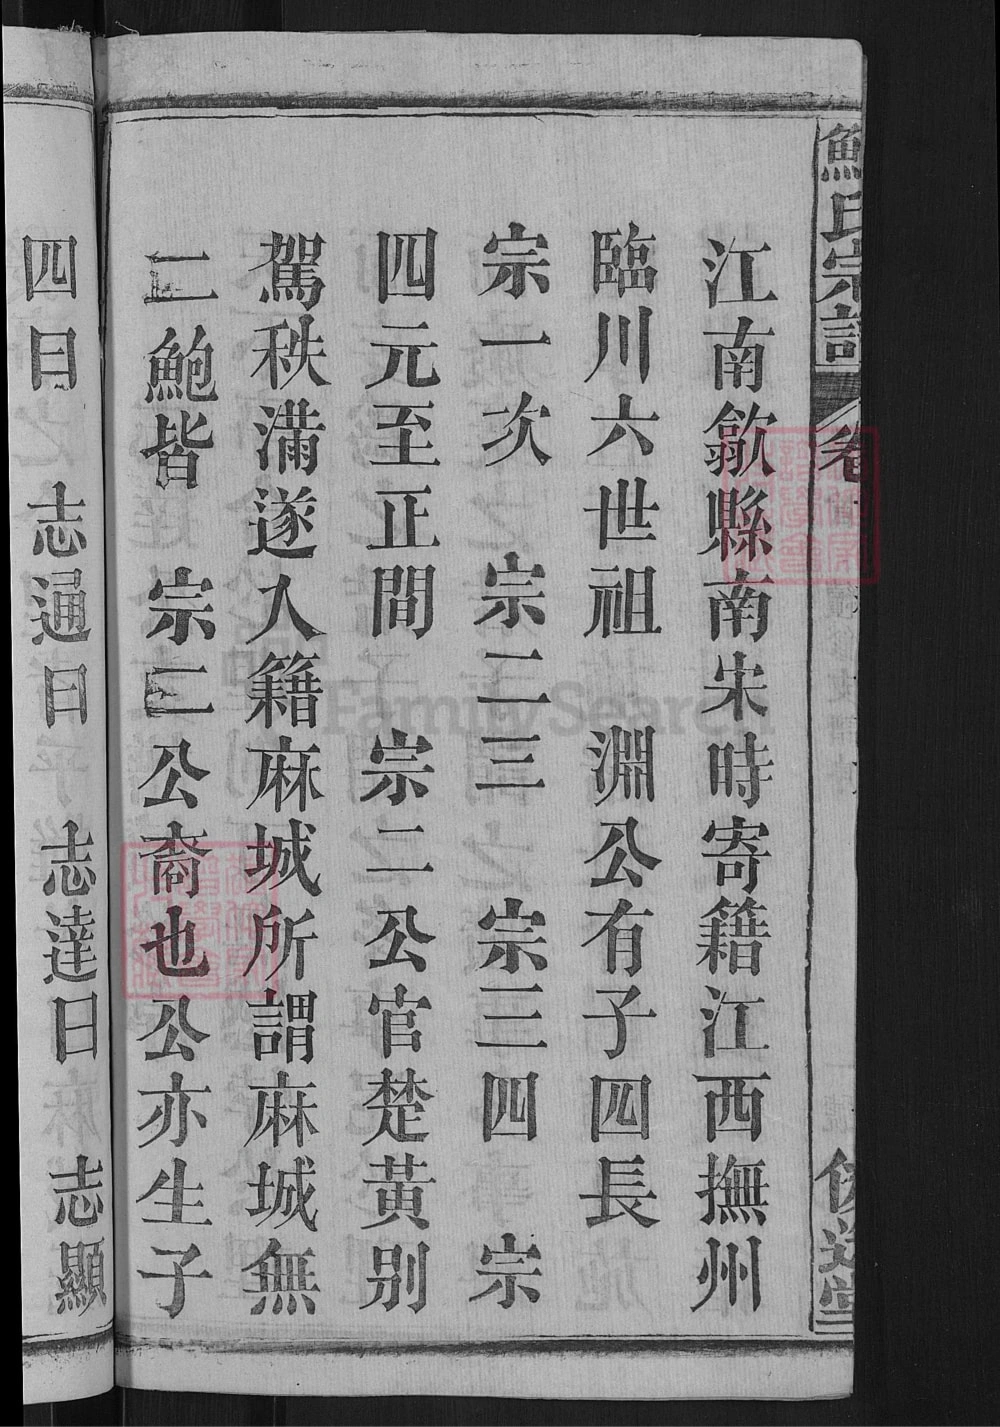 鮑氏宗譜
江南歙縣南宋時寄籍江西撫州
臨川六世祖 淵公有子四長
宗一次 宗二三 宗三四 宗
四元至正間 宗二公官楚黃別
駕秩滿遂入籍麻城所謂麻城無
二鮑皆 宗二公裔也公亦生子
四曰 志通曰 志達曰 志顯
FamilySearch